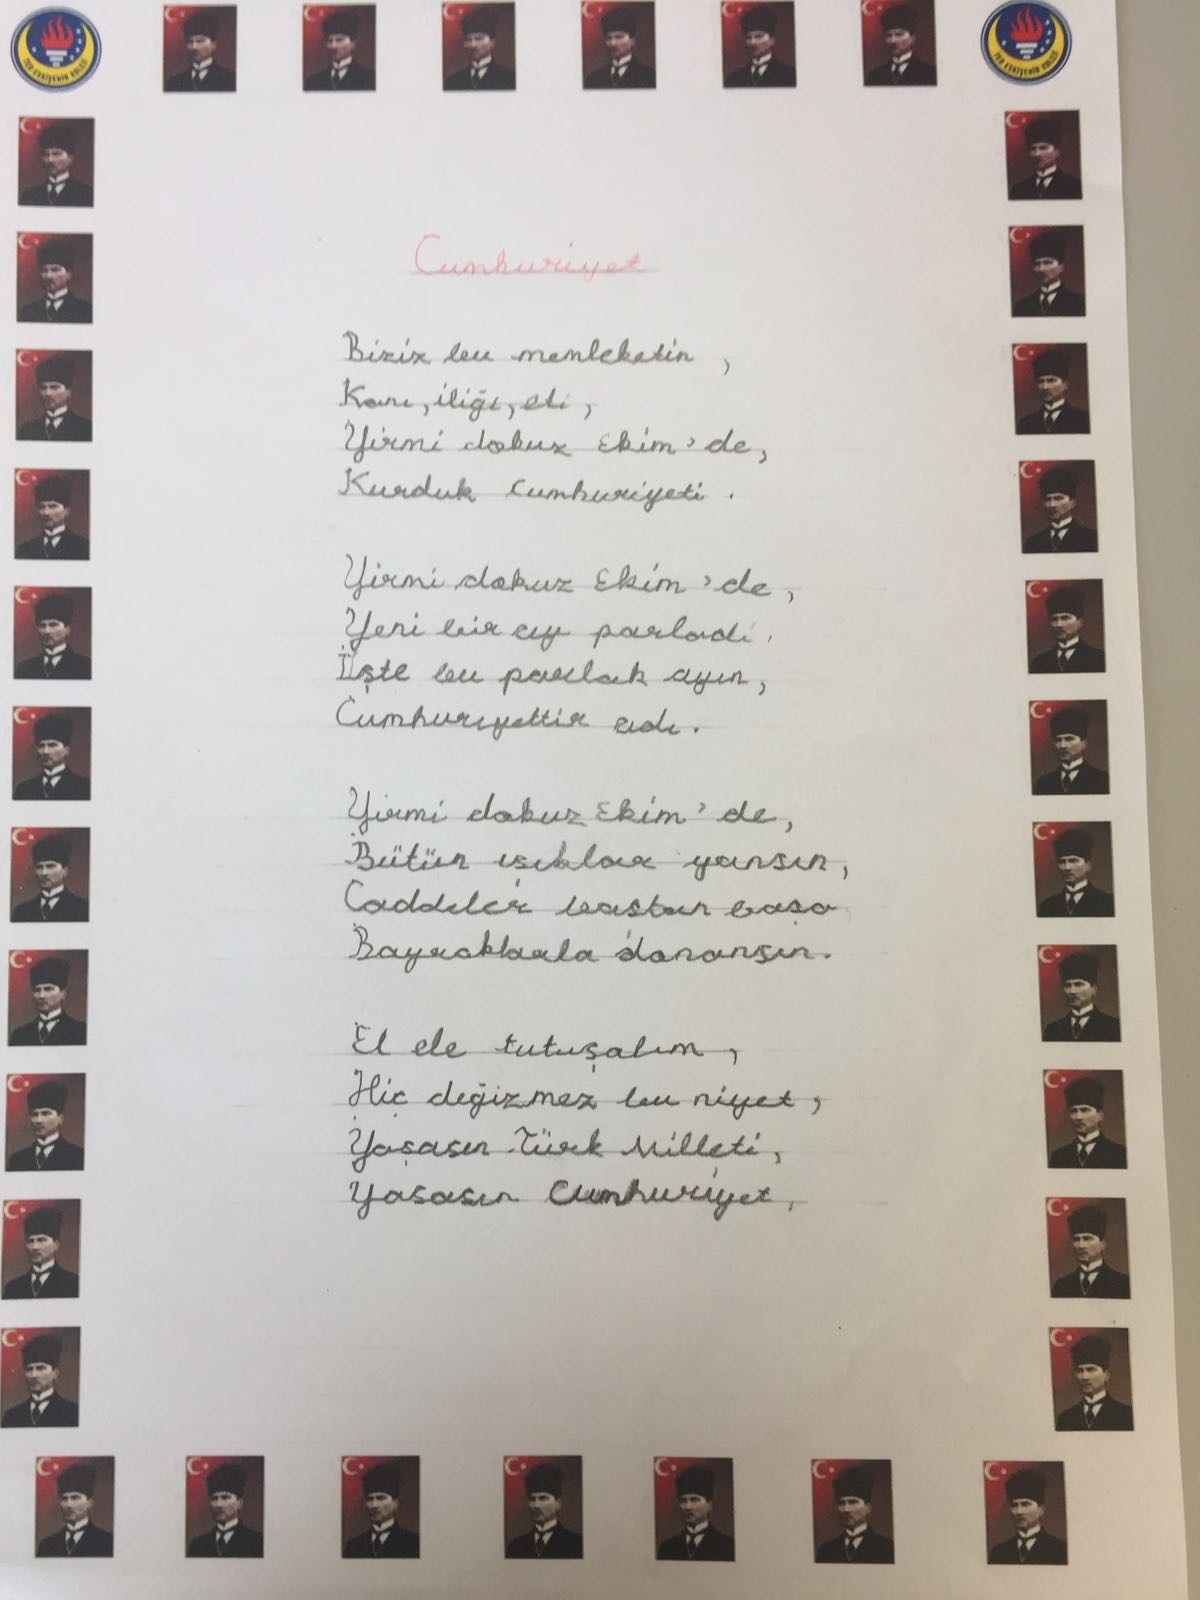 TED ESKİŞEHİR KOLEJİ
TED ESKİŞEHİR KOLEJİ
Cumhuriyet
Biziz bu memleketin,
Kanı, iliği, eti,
Yirmi dokuz Ekim'de,
Kurduk cumhuriyeti.
Yirmi dokuz Ekim'de,
Yeni bir ay parladı.
İşte bu parlak ayın,
Cumhuriyettir adı.
Yirmi dokuz Ekim'de,
Bütün ışıklar yansın,
Caddeler baştan başa
Bayraklarla donansın.
El ele tutuşalım,
Hiç değizmez bu niyet,
Yaşasın Türk Milleti,
Yaşasın Cumhuriyet.